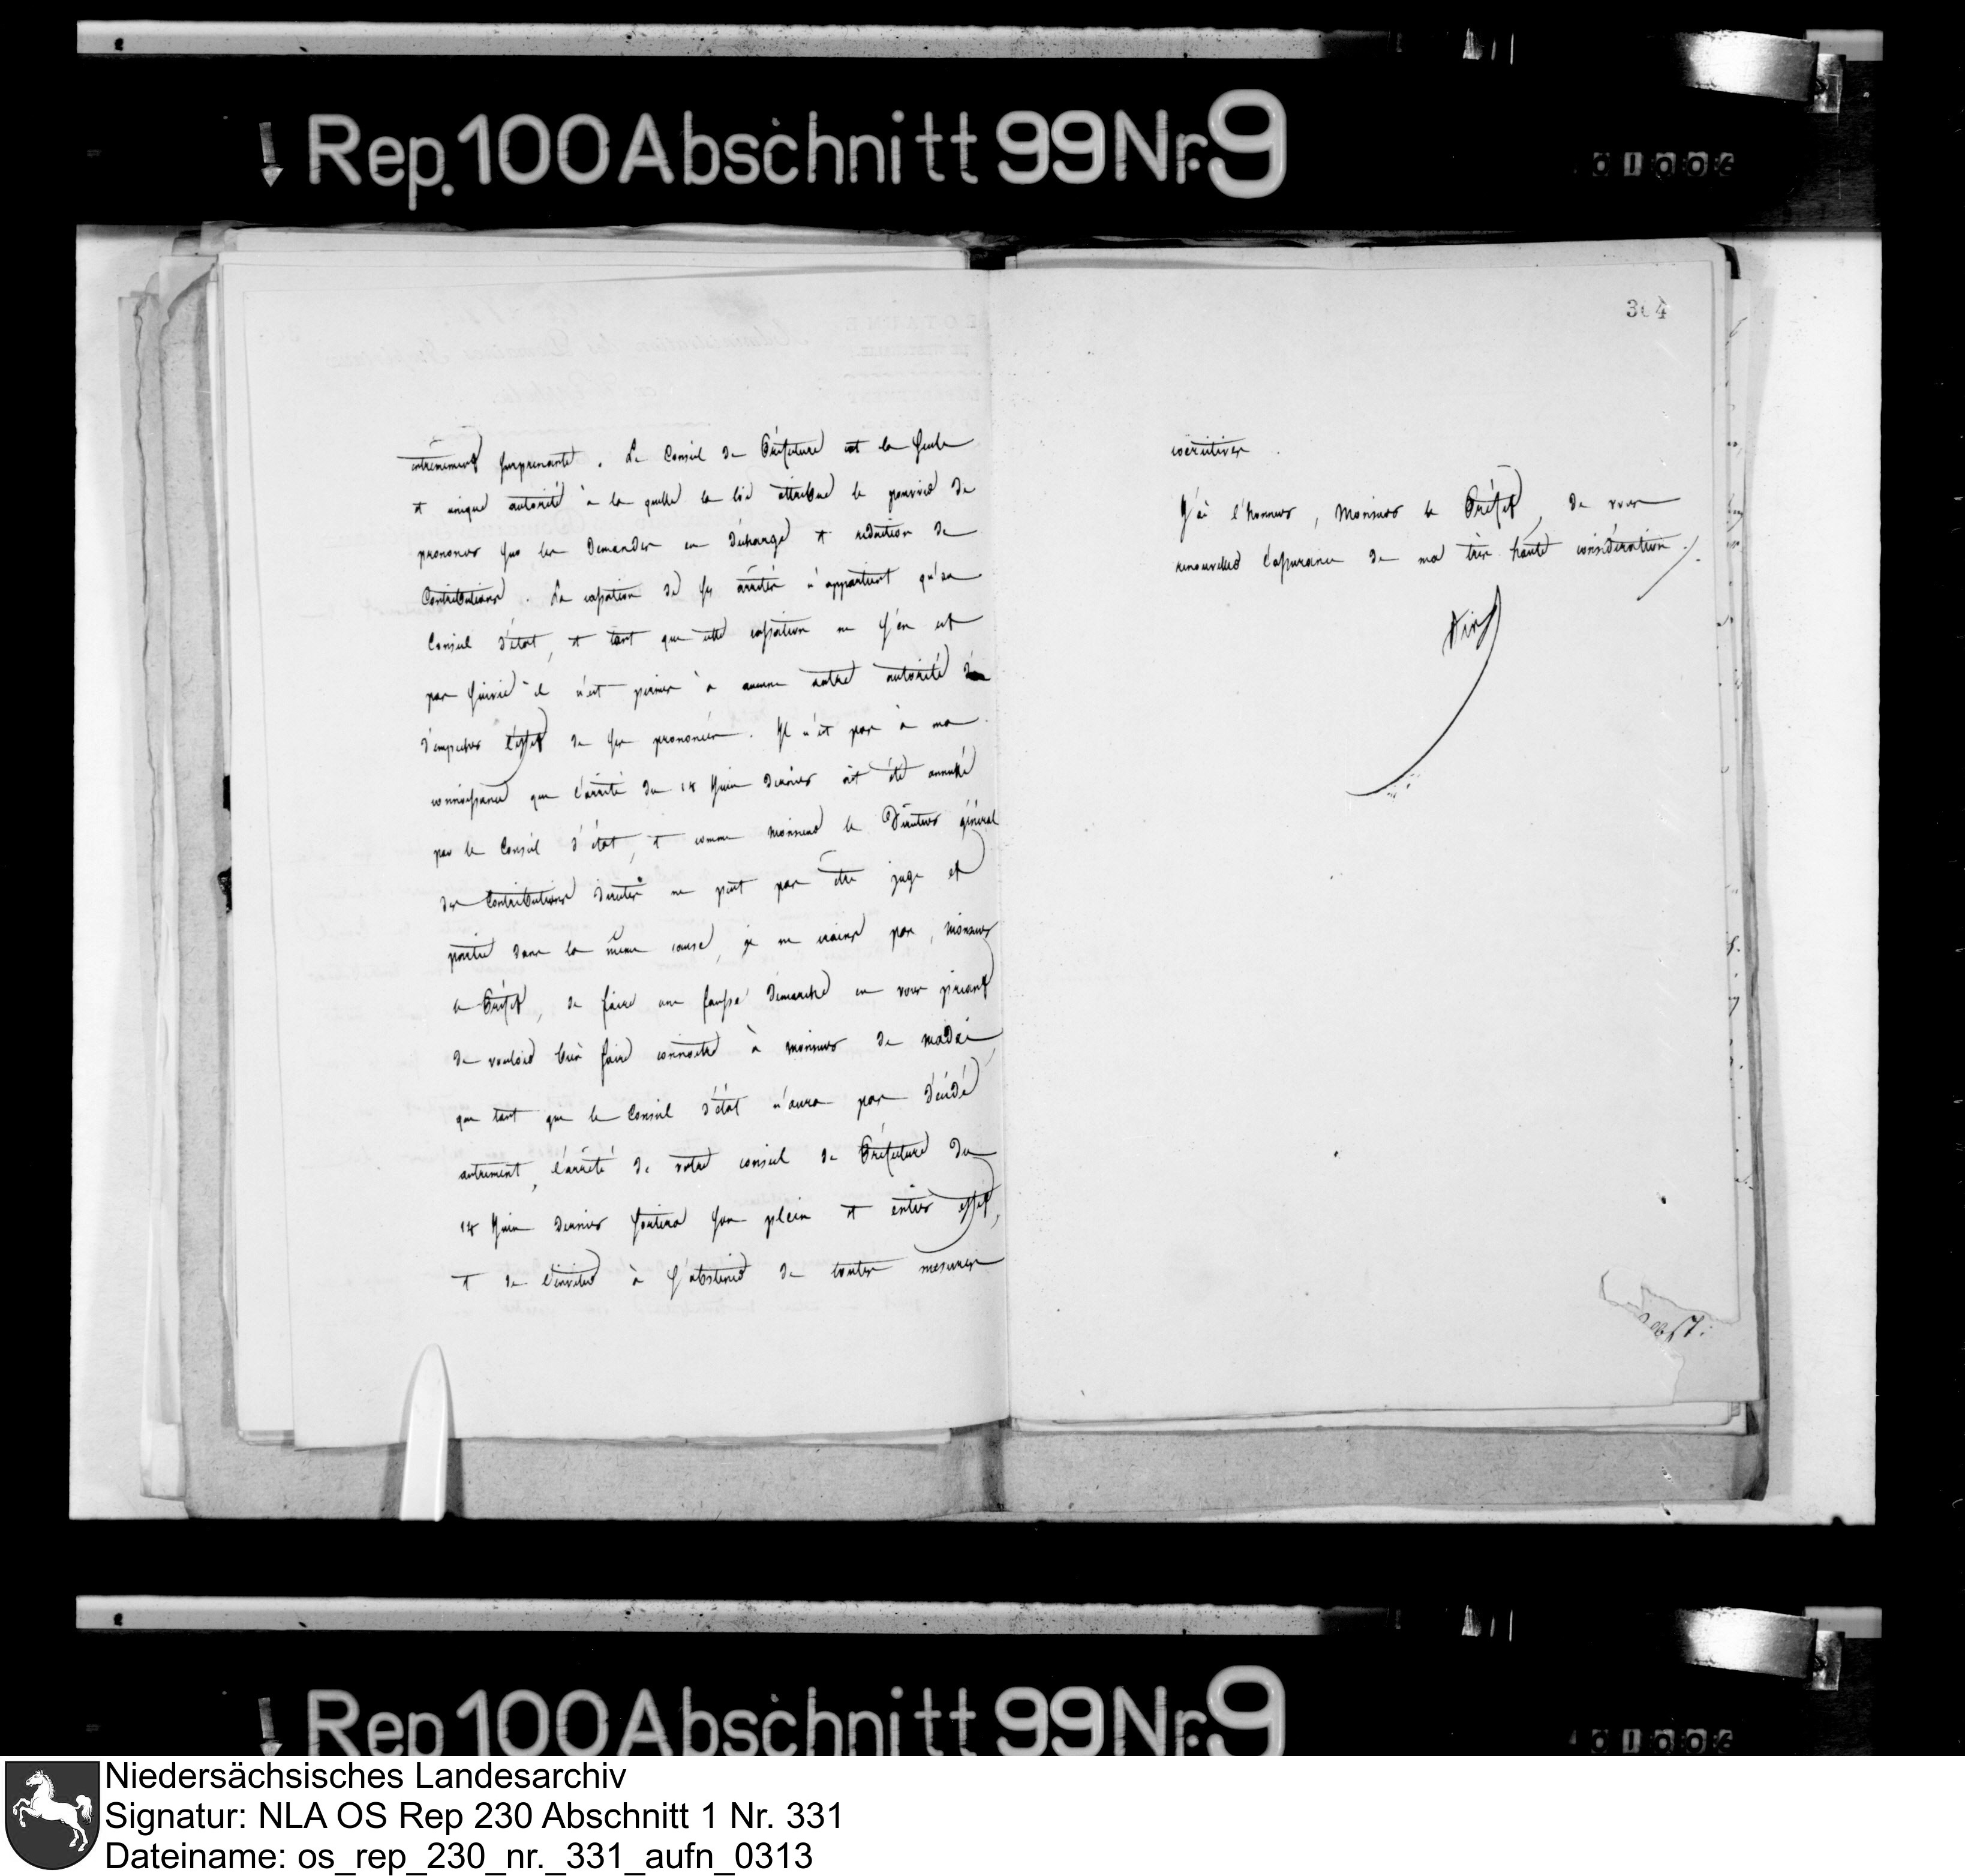 Rep. 100 Abschnitt 99 Nr. 9
304
extrêmement surprenante. Le Conseil de Préfecture est la seule
et unique autorité à la quelle la loi attribue le pouvoir de
prononcer sur les Demandes en décharge et réduction de
Contributions. La cassation de ses arrêtés n'appartient qu'au
Conseil d'état, et tant que cette cassation ne s'en est
pas suivie il n'est permis à aucune autre autorité
d'empecher l'effet de ses prononcés. Il n'est pas à ma
connoissance que l'arrêté du 18 Juin dernier ait été annullé
par le Conseil d'état, et comme Monsieur le Directeur général
des Contributions directes ne peut pas être juge et
partie dans la même cause, je ne crains pas, Monsieur
le Préfet, de faire une fausse démarche en vous priant
de vouloir bien faire connoitre à Monsieur de
que tant que le Conseil d'état n'aura pas décidé
autrement, l'arrêté de votre conseil de Préfecture du
18 Juin dernier sortira son plein et entier effet,
et de l'inviter à s'abstenir de toutes mesures
coërcitives.
J'ai l'honneur, Monsieur le Préfet, de vous
renouveller l'assurance de ma très haute considération.
Rep. 100 Abschnitt 99 Nr. 9
Niedersächsisches Landesarchiv
Signatur: NLA OS Rep 230 Abschnitt 1 Nr. 331
Dateiname: os_rep_230_nr._331_aufn_0313